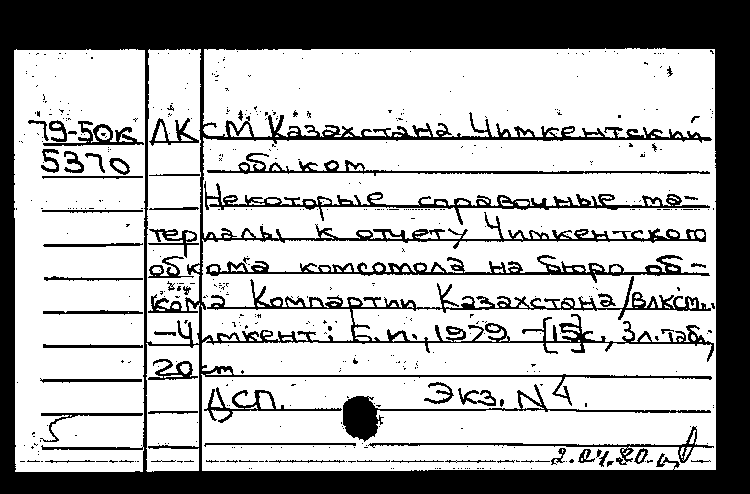 79-50к ЛКСМ Казахстана. Чимкентский
5370 обл. ком.
Некоторые справочные ма-
териалы к отчету Чимкентского
обкома комсомола на бюро об-
кома Компартии Казахстана/ВЛКСМ..
-Чимкент: Б.и., 1979. -[15]с., 3л.табл;
20 см.
ДСП. Экз. N 4.
2.04.80.